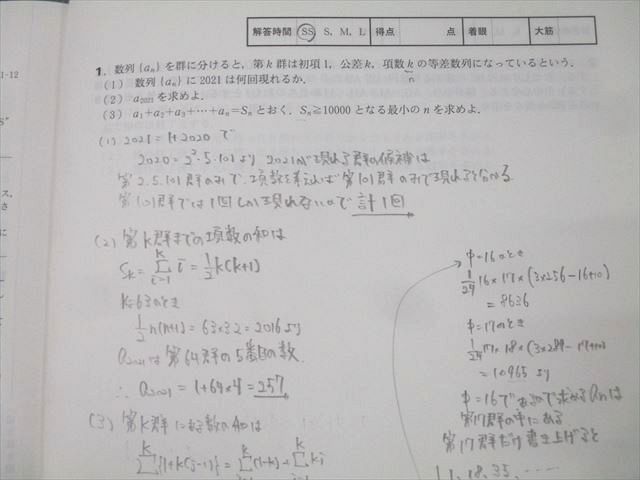 解答時間 SS, S, M, L 得点 点 着眼 大筋
1-12
1. 数列 {an} を群に分けると, 第 k 群は初項 1, 公差 k, 項数 k の等差数列になっているという.
(1) 数列 {an} に 2021 は何回現れるか.
(2) a2021 を求めよ.
(3) a1+a2+a3+…+an=Sn とおく. Sn≧10000 となる最小の n を求めよ.
(1) 2021=1+2020 で
2020=2²・5・101 より 2021が現れる群の候補は
第 2.5.101 群のみで、項数を考えれば 第101群のみで現れると分かる
第101群では1回しか現れないので 計1回
(2) 第k群までの項数の和は
Sk= Σ i = 1/2 k(k+1)
k=63のとき
1/2 n(n+1) = 63×32 = 2016 より
a2021は 第64群の5番目の数.
∴ a2021 = 1+64×4 = 257
(3) 第k群に
の和は
Σ{1+k(j-1)} = Σ(1-k)+Σkj
φ=16のとき
1/24 16×17×(3×256-16+10)
= 8636
φ=17のとき
1/24 17×18×(3×289-17+10)
= 10965 より
φ=16であるので求めるanは
第17群の中にある
第17群だけ書き上げると
1, 18, 35, ‥‥‥